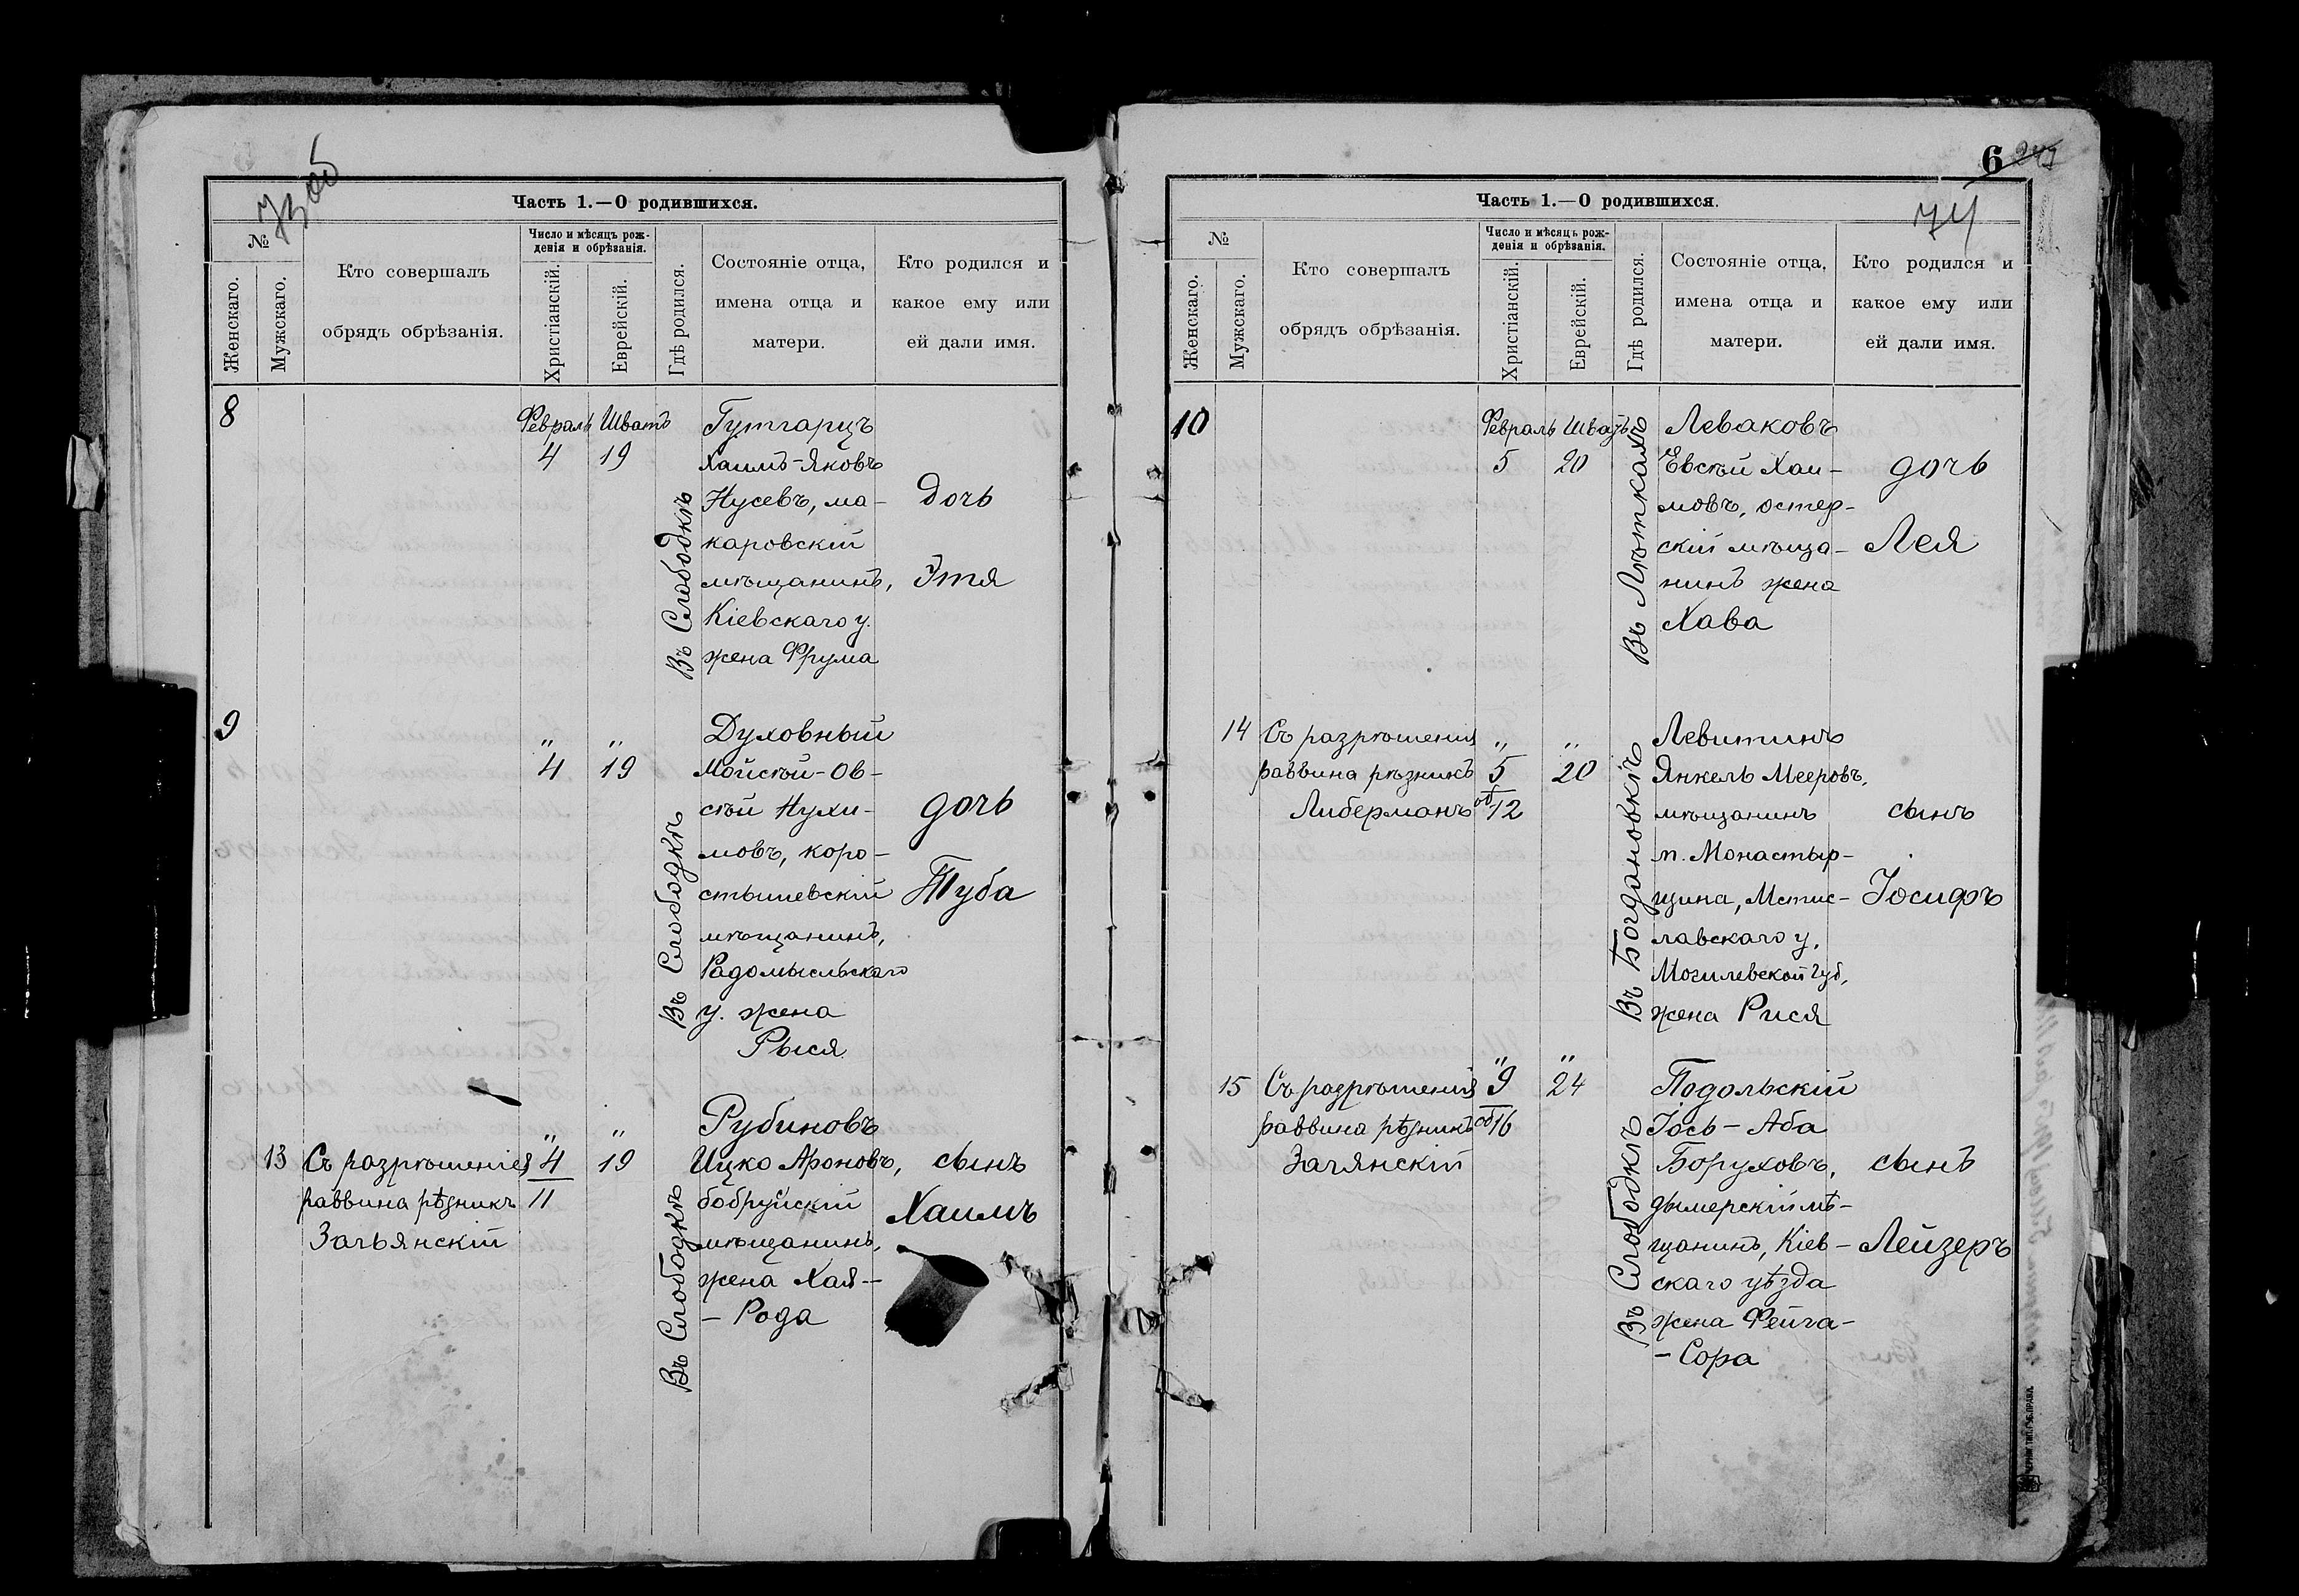 73об
Часть 1.—О родившихся.
№
Женскаго.
Мужскаго.
Кто совершалъ
обрядъ обрѣзанія.
Число и мѣсяцъ рож-
денія и обрѣзанія.
Христіанскій.
Еврейскій.
Гдѣ родился.
Состояніе отца,
имена отца и
матери.
Кто родился и
какое ему или
ей дали имя.
8
Февраль Шватъ
4 19
Въ Слободкѣ
Гутгарцъ
Хаимъ-Яковъ
Нусевъ, ма-
каровскій
мѣщанинъ,
Кіевскаго у.
жена Фрума
Дочь
Этя
9
" "
4 19
Въ Слободкѣ
Духовный
Мойсѣй-Ов-
сѣй Нухи-
мовъ, коро-
стышевскій
мѣщанинъ,
Радомысльскаго
у. жена
Рыся
дочь
Туба
13
Съ разрѣшенія
раввина рѣзникъ
Зачьянскій
" "
4 19
11
Въ Слободкѣ
Рубиновъ
Ицко Ароновъ,
бобруйскій
мѣщанинъ,
жена Хая-
- Рода
сынъ
Хаимъ
6
74
Часть 1.—О родившихся.
№
Женскаго.
Мужскаго.
Кто совершалъ
обрядъ обрѣзанія.
Число и мѣсяцъ рож-
денія и обрѣзанія.
Христіанскій.
Еврейскій.
Гдѣ родился.
Состояніе отца,
имена отца и
матери.
Кто родился и
какое ему или
ей дали имя.
10
Февраль Шватъ
5 20
Въ Лѣткахъ
Леваковъ
Евсѣй Хаи-
мовъ, остер-
скій мѣща-
нинъ жена
Хава
дочь
Лея
14
Съ разрѣшенія
раввина рѣзникъ
Либерманъ
" "
5 20
об 12
Въ Богдановкѣ
Левитинъ
Янкель Мееровъ,
мѣщанинъ
м. Монастыр-
щина, Мстис-
лавскаго у,
Могилевской губ,
жена Рися
сынъ
Іосифъ
15
Съ разрѣшенія
раввина рѣзникъ
Зачянскій
" "
9 24
об 16
Въ Слободкѣ
Подольскій
Іось-Аба
Боруховъ,
дымерскій мѣ-
щанинъ, Кіев-
скаго уѣзда
жена Фейга-
- Сора
сынъ
Лейзеръ